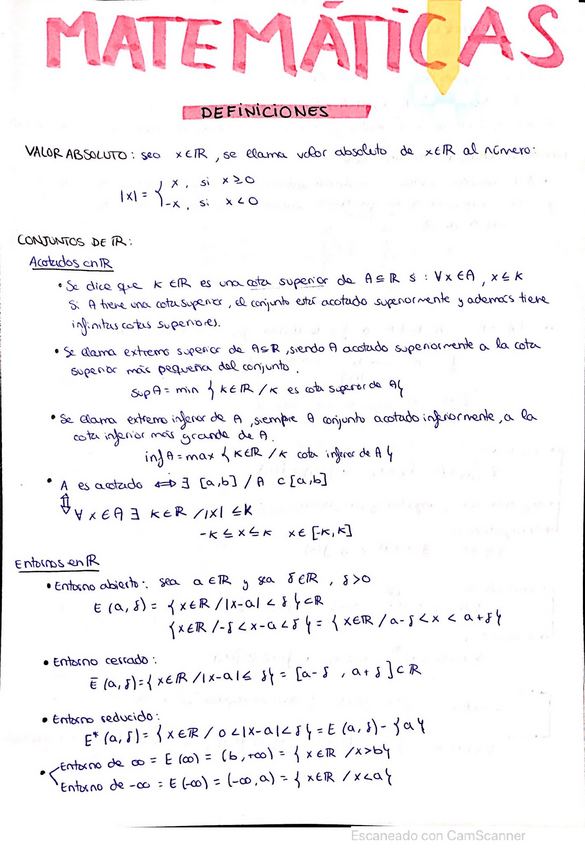 MATEMÁTICAS
DEFINICIONES
VALOR ABSOLUTO: sea x∈ℝ, se llama valor absoluto de x∈ℝ al número:
|x| = { x, si x≥0
-x, si x<0
CONJUNTOS DE ℝ:
Acotados en ℝ
• Se dice que K∈ℝ es una cota superior de A⊆ℝ si: ∀x∈A, x≤K
Si A tiene una cota superior, el conjunto está acotado superiormente y además tiene
infinitas cotas superiores.
• Se llama extremo superior de A⊆ℝ, siendo A acotado superiormente a la cota
superior más pequeña del conjunto.
sup A = min { K∈ℝ / K es cota superior de A}
• Se llama extremo inferior de A, siempre A conjunto acotado inferiormente, a la
cota inferior más grande de A.
inf A = max { K∈ℝ / K cota inferior de A}
• A es acotado ⟺ ∃ [a,b] / A ⊂ [a,b]
⇕ ∀x∈A ∃ K∈ℝ / |x| ≤ K
-K ≤ x ≤ K x∈[-K,K]
Entornos en ℝ
• Entorno abierto: sea a∈ℝ y sea δ∈ℝ, δ>0
E(a,δ) = {x∈ℝ / |x-a| < δ} ⊂ ℝ
{x∈ℝ / -δ < x-a < δ} = {x∈ℝ / a-δ < x < a+δ}
• Entorno cerrado:
Ē(a,δ) = {x∈ℝ / |x-a| ≤ δ} = [a-δ, a+δ] ⊂ ℝ
• Entorno reducido:
E*(a,δ) = {x∈ℝ / 0 < |x-a| < δ} = E(a,δ) - {a}
• Entorno de ∞ = E(∞) = (b,+∞) = {x∈ℝ / x>b}
Entorno de -∞ = E(-∞) = (-∞,a) = {x∈ℝ / x<a}
Escaneado con CamScanner